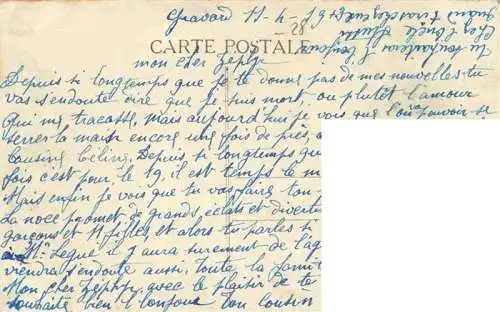 Gravard 11-4-1928
CARTE POSTALE
mon cher Zéphir
Depuis si longtemps que je te donne pas de mes nouvelles tu
vas s'endoute dire que je suis mort, ou plutêt l'amour
qui me tracasse, mais aujourd hui je vois que l'on va pouvoir se
serrer la main encore une fois de près, a
cousine Céline. Depuis si longtemps que
fois c'est pour le 19, il est temps le m
Mais enfin je vois que tu vas faire ton
La noce promet de grands éclats et diverti
garçons et 11 filles, et alors tu partes si
Mr Legue il y aura surement de l'ag
viendra s'endoute aussi. Toute la famil
Mon cher Zéphir avec le plaisir de te
souhaite bien l bonjour Ton cousin
Tu souhaiteras l bonjour
chez l'oncle
quand tu iras chez eux